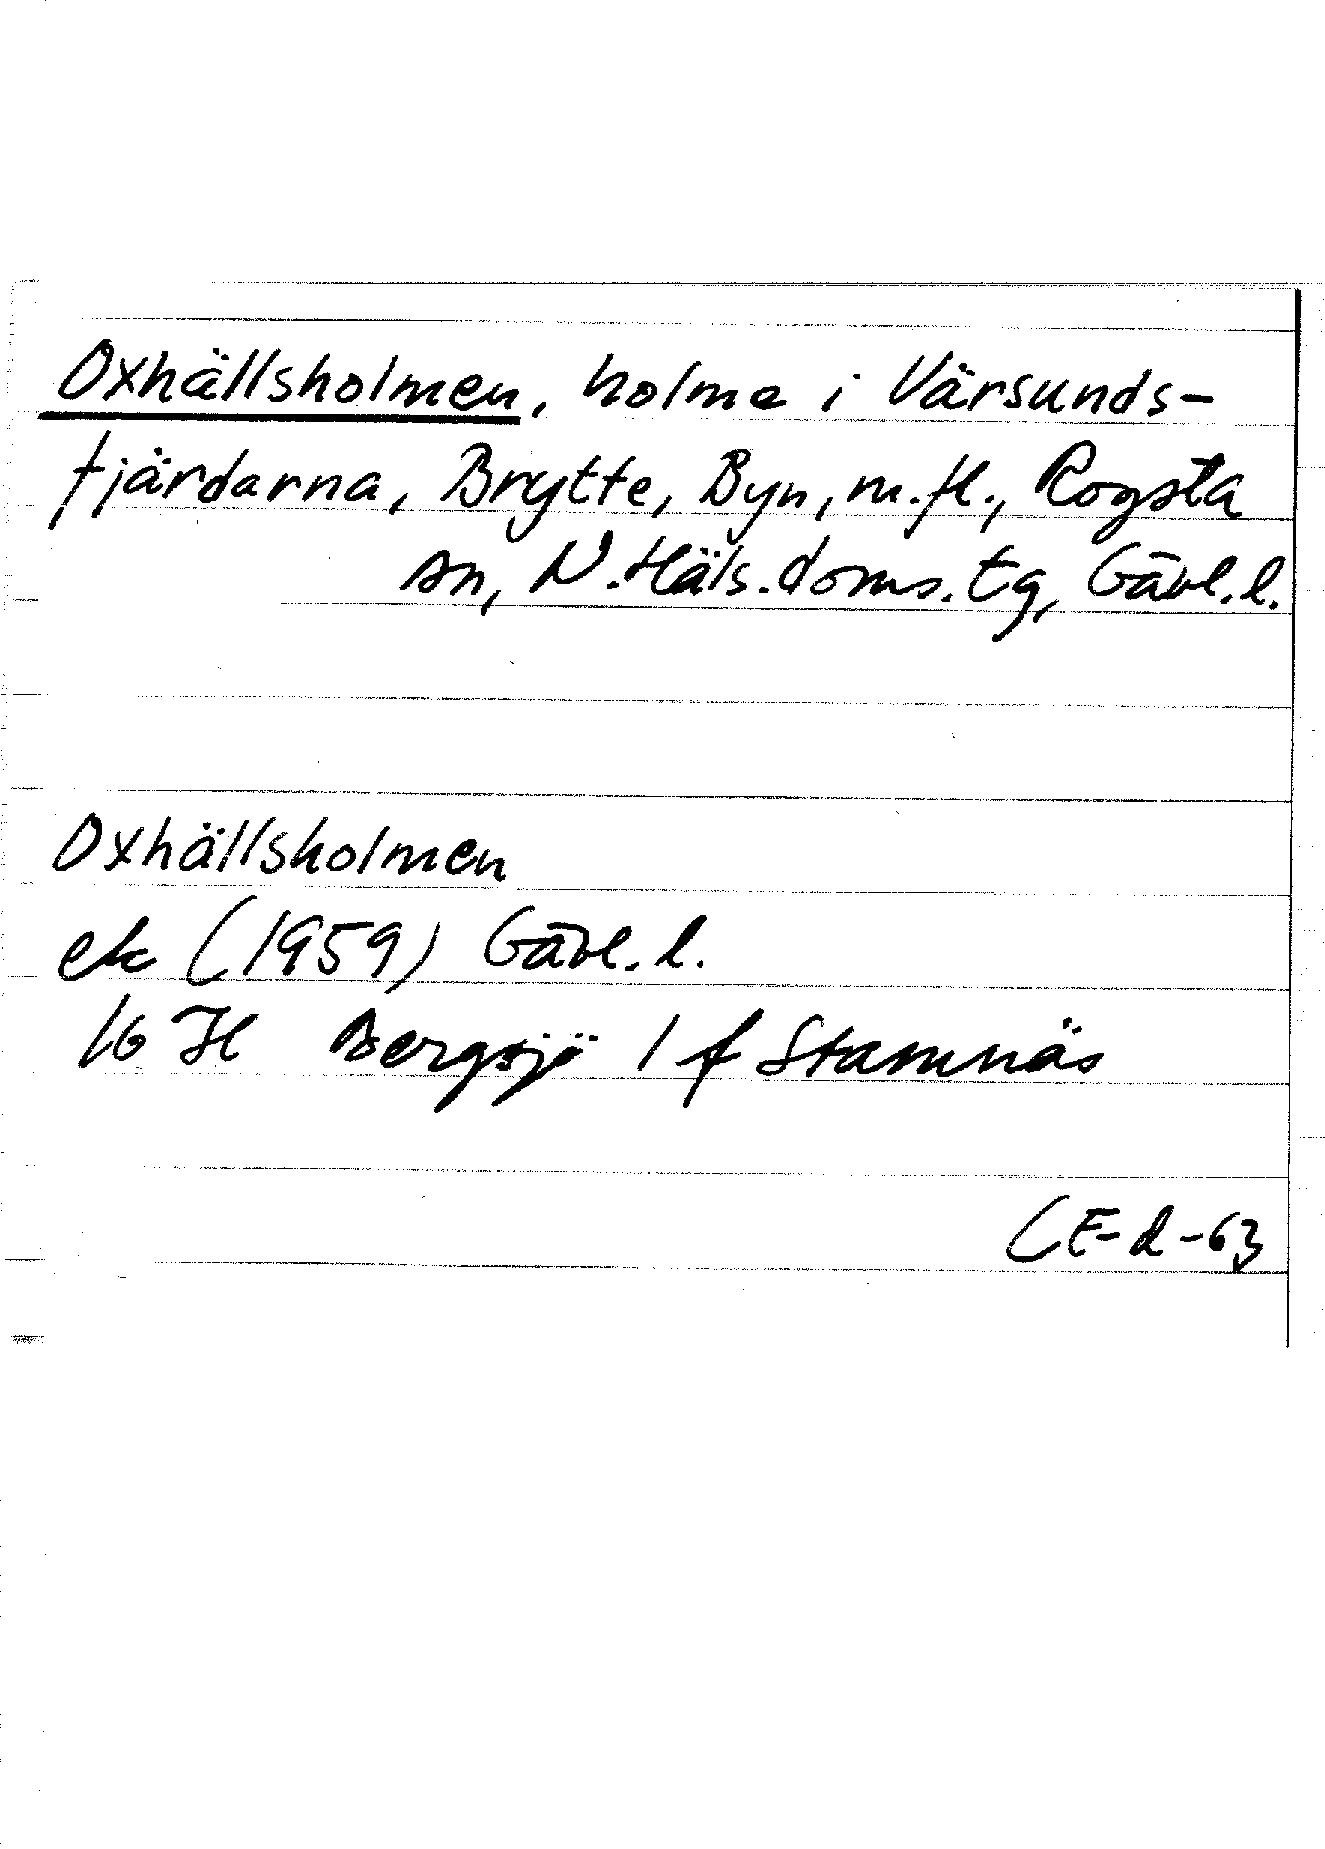 Oxhällsholmen, holme i Värsunds-
fjärdarna, Brytte, Byn, m.fl., Rogsta
sn, N.Häls.doms.tg, Gävl.l.
Oxhällsholmen
ek (1959) Gävl.l.
16 H Bergsjö 1 f Stamnäs
CE-d-63